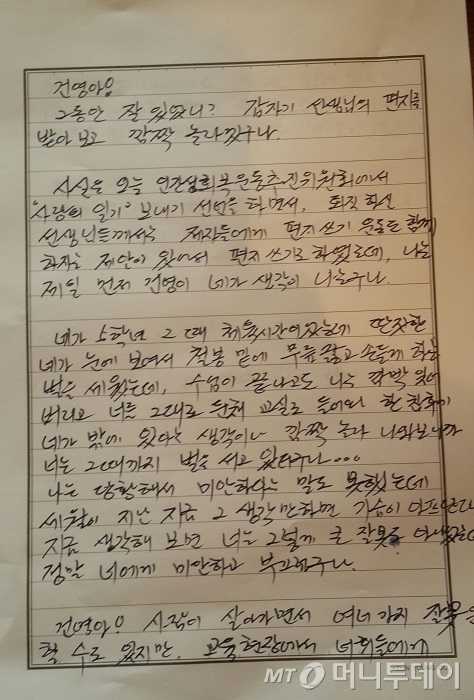 건영아!
그동안 잘 있었니? 갑자기 선생님의 편지를
받아 보고 깜짝 놀라겠구나.
사실은 오늘 인간성회복운동추진위원회에서
"사랑의 일기" 보내기 선언을 하면서, 퇴직하신
선생님들께서는 제자들에게 편지쓰기 운동을 함께
하자는 제안이 있어서 편지쓰기로 하였는데, 나는
제일 먼저 건영이 네가 생각이 나는구나.
네가 5학년 그 때 체육시간이었는데 딴짓한
네가 눈에 보여서 철봉 밑에 무릎 꿇고 손들게 하는
벌을 세웠는데, 수업이 끝나고도 나는 깜박 잊어
버리고 너를 그대로 둔채 교실로 들어와 한참후에
네가 밖에 있다는 생각이나 깜짝 놀라 나와보니까
너는 그때까지 벌을 서고 있더구나...
나는 당황해서 미안하다는 말도 못했는데
세월이 지난 지금 그 생각만하면 가슴이 아프단다
지금 생각해 보면 너는 그렇게 큰 잘못도 아니었는데
정말 너에게 미안하고 부끄럽구나.
건영아! 사람이 살아가면서 여러가지 잘못을
할 수도 있지만. 교육현장에서 너희들에게
MT 머니투데이